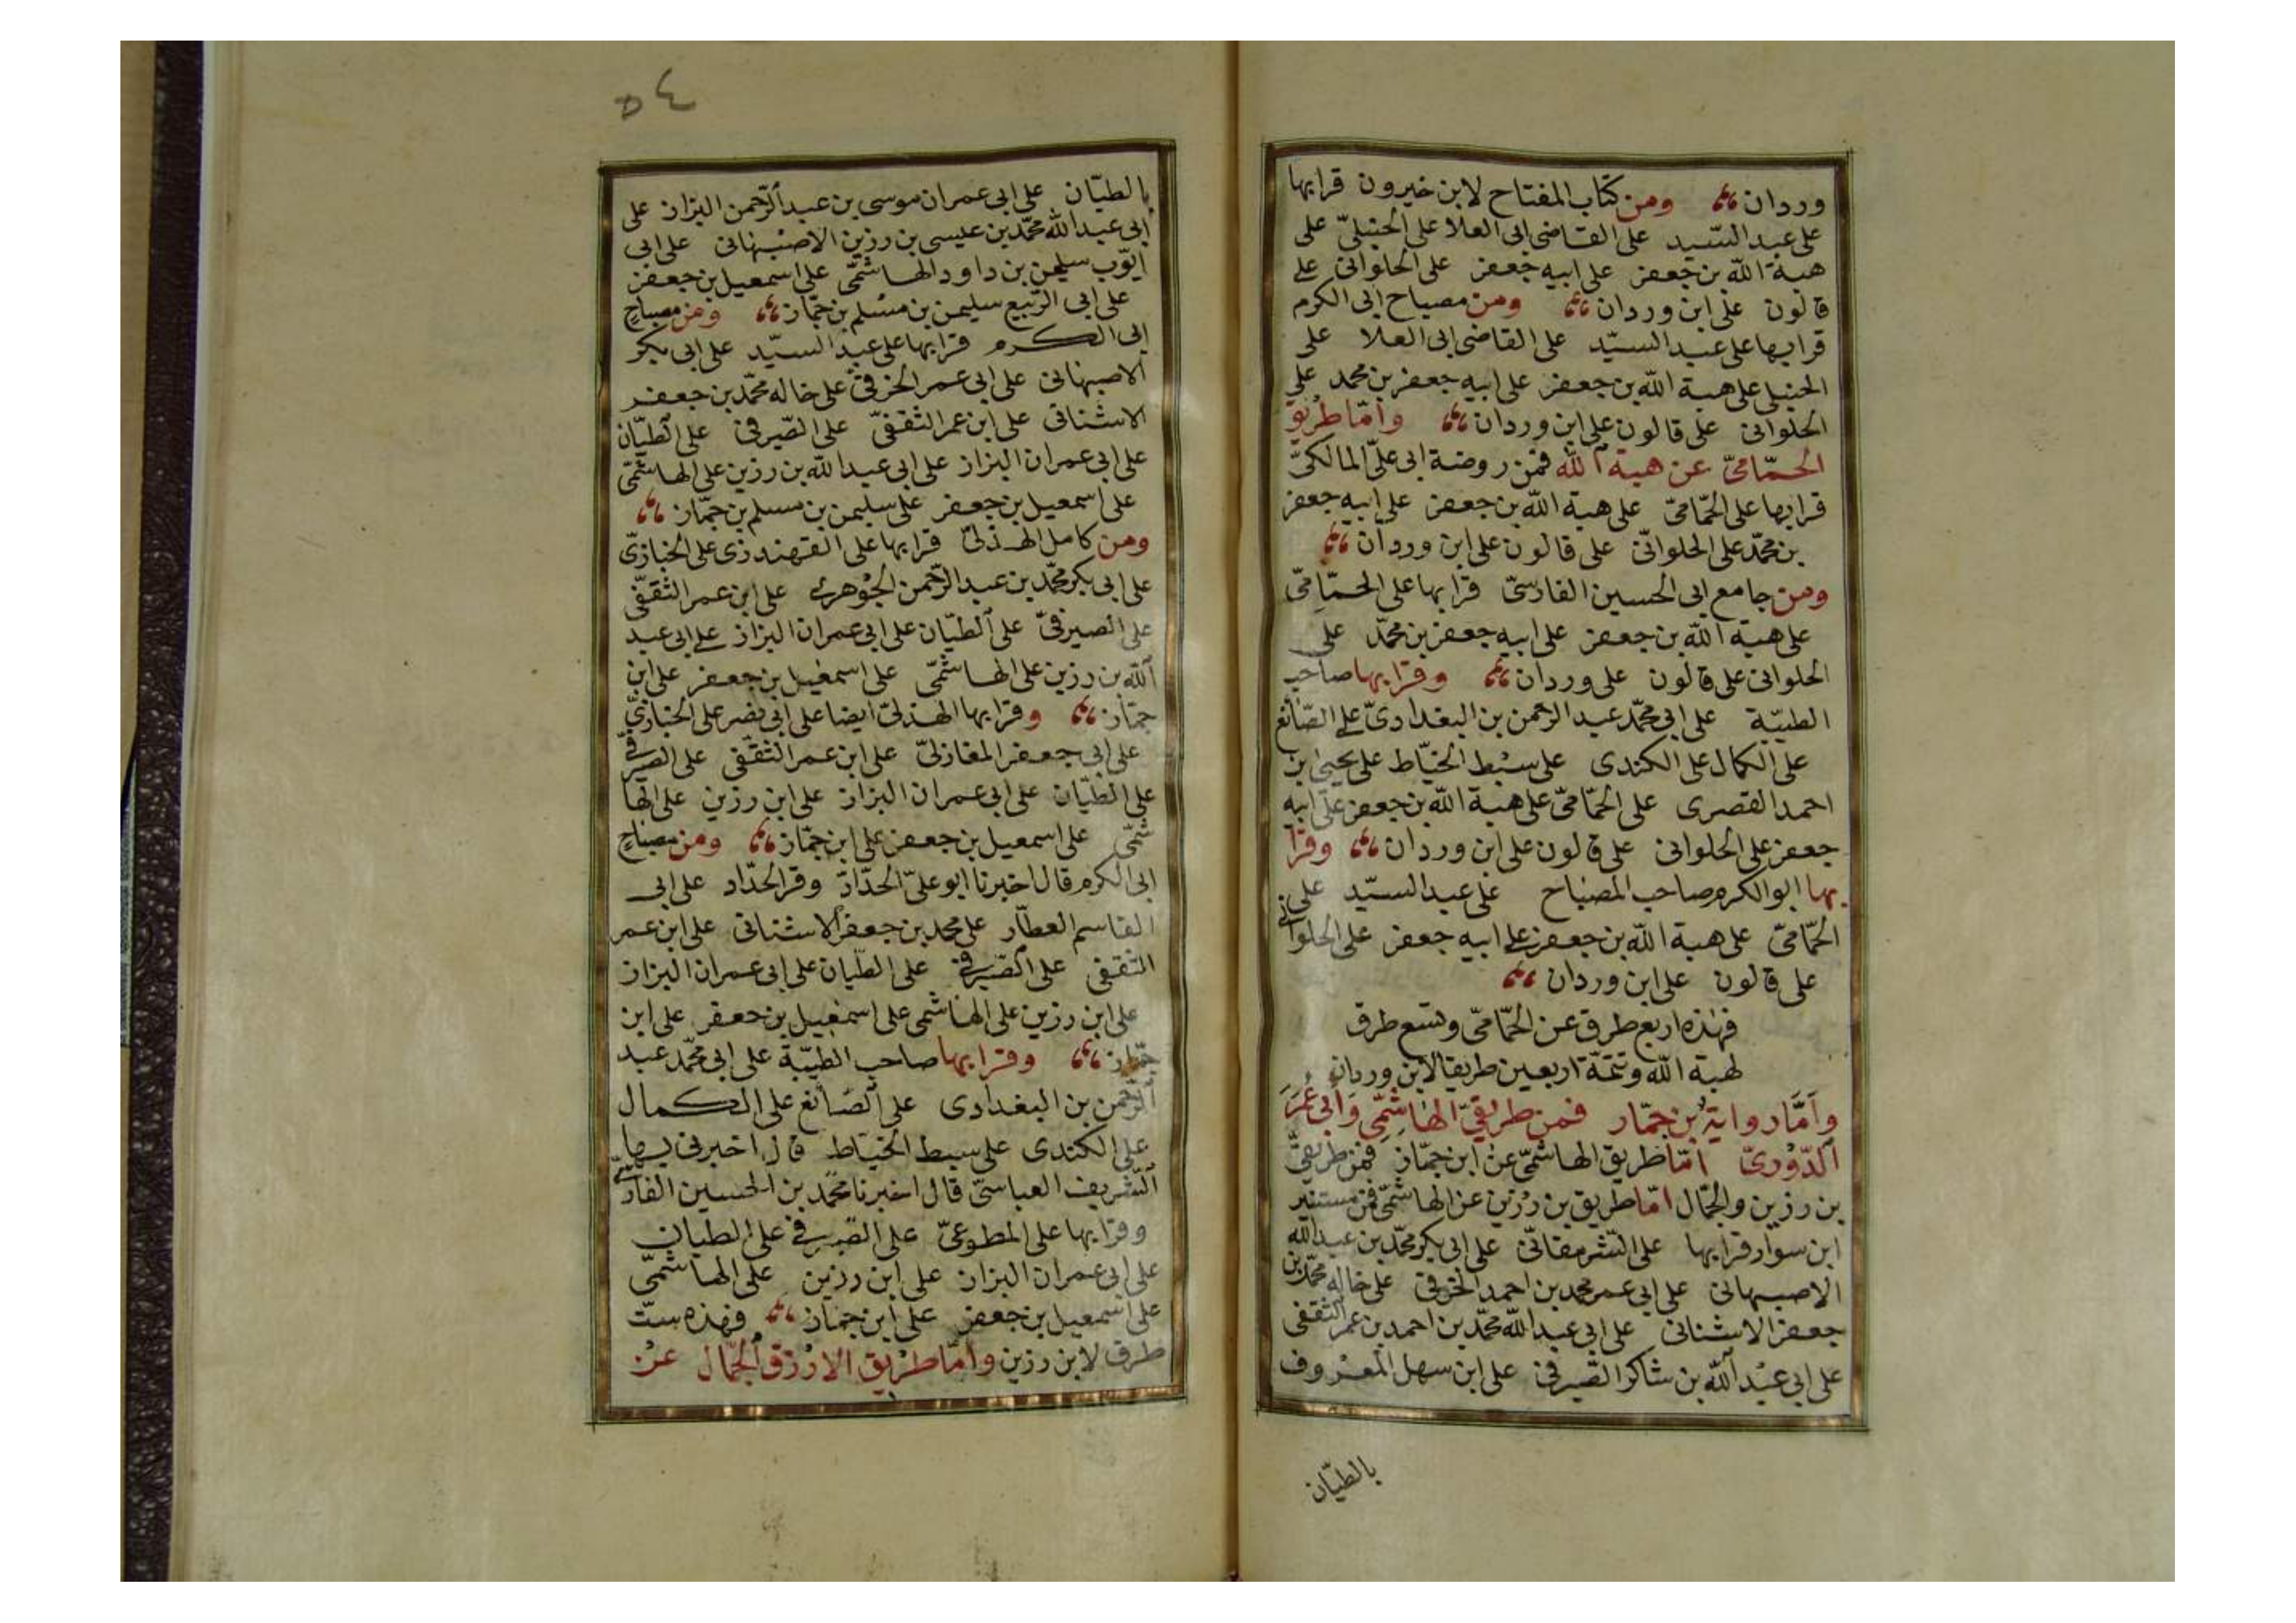 وردان ومن كتاب المفتاح لابن خيرون قرا بها
على عبد السيد على القاضى ابى العلا على الحنبلىّ على
هبة الله بن جعفر على ابيه جعفر على الحلوانى على
قالون على ابن وردان ومن مصباح ابى الكرم
قرا بها على عبد السيّد على القاضى ابى العلا على
الحنبلى على هبة الله بن جعفر على ابيه جعفر بن محمد على
الحلوانى على قالون على ابن وردان وامّا طريق
الحمّامىّ عن هبة الله فمن روضة ابى علىّ المالكىّ
قرا بها على الحمّامىّ على هبة الله بن جعفر على ابيه جعفر
بن محمّد على الحلوانىّ على قالون على ابن وردان
ومن جامع ابى الحسين الفارسىّ قرا بها على الحمّامىّ
على هبة الله بن جعفر على ابيه جعفر بن محمّد على
الحلوانى على قالون على وردان وقرا بها صاحب
الطيبّة على ابى محمّد عبد الرحمن بن البغدادىّ على الصّائغ
على الكمال على الكندى على سبط الخيّاط على يحيى بن
احمد القصرى على الحمّامىّ على هبة الله بن جعفر على ابيه
جعفر على الحلوانى على قالون على ابن وردان وقرا
بها ابو الكرم صاحب المصباح على عبد السيّد على
الحمّامىّ على هبة الله بن جعفر على ابيه جعفر على الحلوانى
على قالون على ابن وردان
فهذه اربع طرق عن الحمّامىّ وتسع طرق
لهبة الله وتتمّة اربعين طريقا لابن وردان
وَامَّا رواية بن جمّاز فمن طريقىّ الهاشِمّى وَابى عُمَرَ
الدّوُرىّ امّا طريق الهاشمّى عن ابن جمّاز فمن طريقىّ
بن رزين والجمّال امّا طريق بن رزين عن الهاشمّى فمن مستنير
ابن سوار قرا بها على الشرمقانّى على ابى بكر محمّد بن عبد الله
الاصبهانى على ابى عمر محمد بن احمد الخرقى على خاله محمّد بن
جعفر الاشنانى على ابى عبد الله محمّد بن احمد بن عمر الثقفى
على ابى عبد الله بن شاكر الصّيرفى على ابن سهل المعروف
بالطيّان
٥٤
بالطيّان على ابى عمران موسى بن عبد الرّحمن البزاز على
ابى عبد الله محمّد بن عيسى بن رزين الاصبهانى على ابى
ايّوب سليمن بن داود الهاشمّى على اسمعيل بن جعفر
على ابى الرّبيع سليمن بن مسْلم بن جمّاز ومن مصباح
ابى الكرم قرا بها على عبد السيّد على ابى بكر
الاصبهانى على ابى عمر الخرقىّ على خاله محمّد بن جعفر
الاشنانى على ابن عمر الثقفىّ على الصّيرفى على الطيّان
على ابى عمران البزاز على ابى عبد الله بن رزين على الهاشمّى
على اسمعيل بن جعفر على سليمن بن مسلم بن جمّاز
ومن كامل الهذلىّ قرا بها على القهندزى على الخبازىّ
على ابى بكر محمّد بن عبد الرّحمن الجوْهرى على ابن عمر الثقفّى
على الصيرفىّ على الطيّان على ابى عمران البزاز على ابى عبد
الله بن رزين على الهاشمّى على اسمعيل بن جعفر على ابن
جمّاز وقرا بها الهذلىّ ايضا على ابى نصر على الخبازىّ
على ابى جعفر المغازلىّ على ابن عمر الثقفّى على الصيرفىّ
على الطيّان على ابى عمران البزاز على ابن رزين على الها
شمّى على اسمعيل بن جعفر على ابن جمّاز ومن مصباح
ابى الكرم قال اخبرنا ابو علىّ الحدّاد وقرا الحدّاد على ابى
القاسم العطّار على محمد بن جعفر الاشنانى على ابن عمر
الثقفى على الصّيرفى على الطيّان على ابى عمران البزاز
على ابن رزين على الهاشمى على اسمعيل بن جعفر على ابن
جمّاز وقرا بها صاحب الطيّبة على ابى محمّد عبد
الرّحمن بن البغدادى على الصَائغ على الكمال
على الكندى على سبط الخيّاط قال اخبرنى بها
الشّريف العباسىّ قال اخبرنا محمّد بن الحسين الفارسىّ
وقرا بها على المطوعىّ على الصّيرفى على الطيان
على ابى عمران البزاز على ابن رزين على الهاشمّى
على اسمعيل بن جعفر على ابن جمّاز فهذه ستّ
طرق لابن رزين وامّا طريق الازرق الجّمال عن